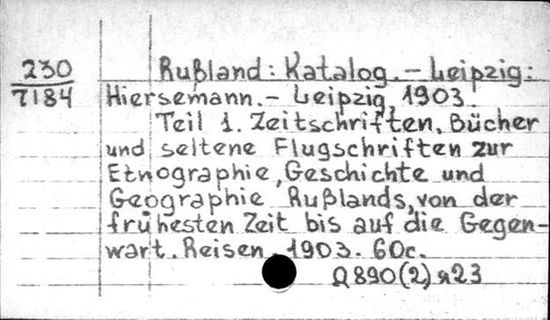 230
7184
Rußland: Katalog. – Leipzig:
Hiersemann. – Leipzig, 1903.
Teil 1. Zeitschriften, Bücher
und seltene Flugschriften zur
Etnographie, Geschichte und
Geographie Rußlands, von der
frühesten Zeit bis auf die Gegen-
wart. Reisen. 1903. 60c.
Я23